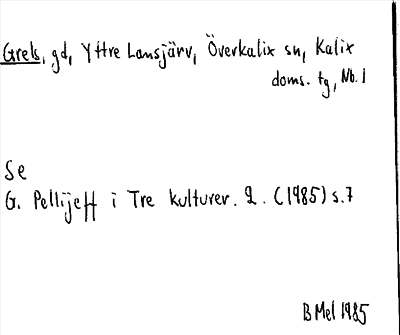 Grels, gd, Yttre Lansjärv, Överkalix sn, Kalix
doms. tg, Nb. l
Se
G. Pellijeff i Tre kulturer. 2. (1985) s. 7
B Mel 1985